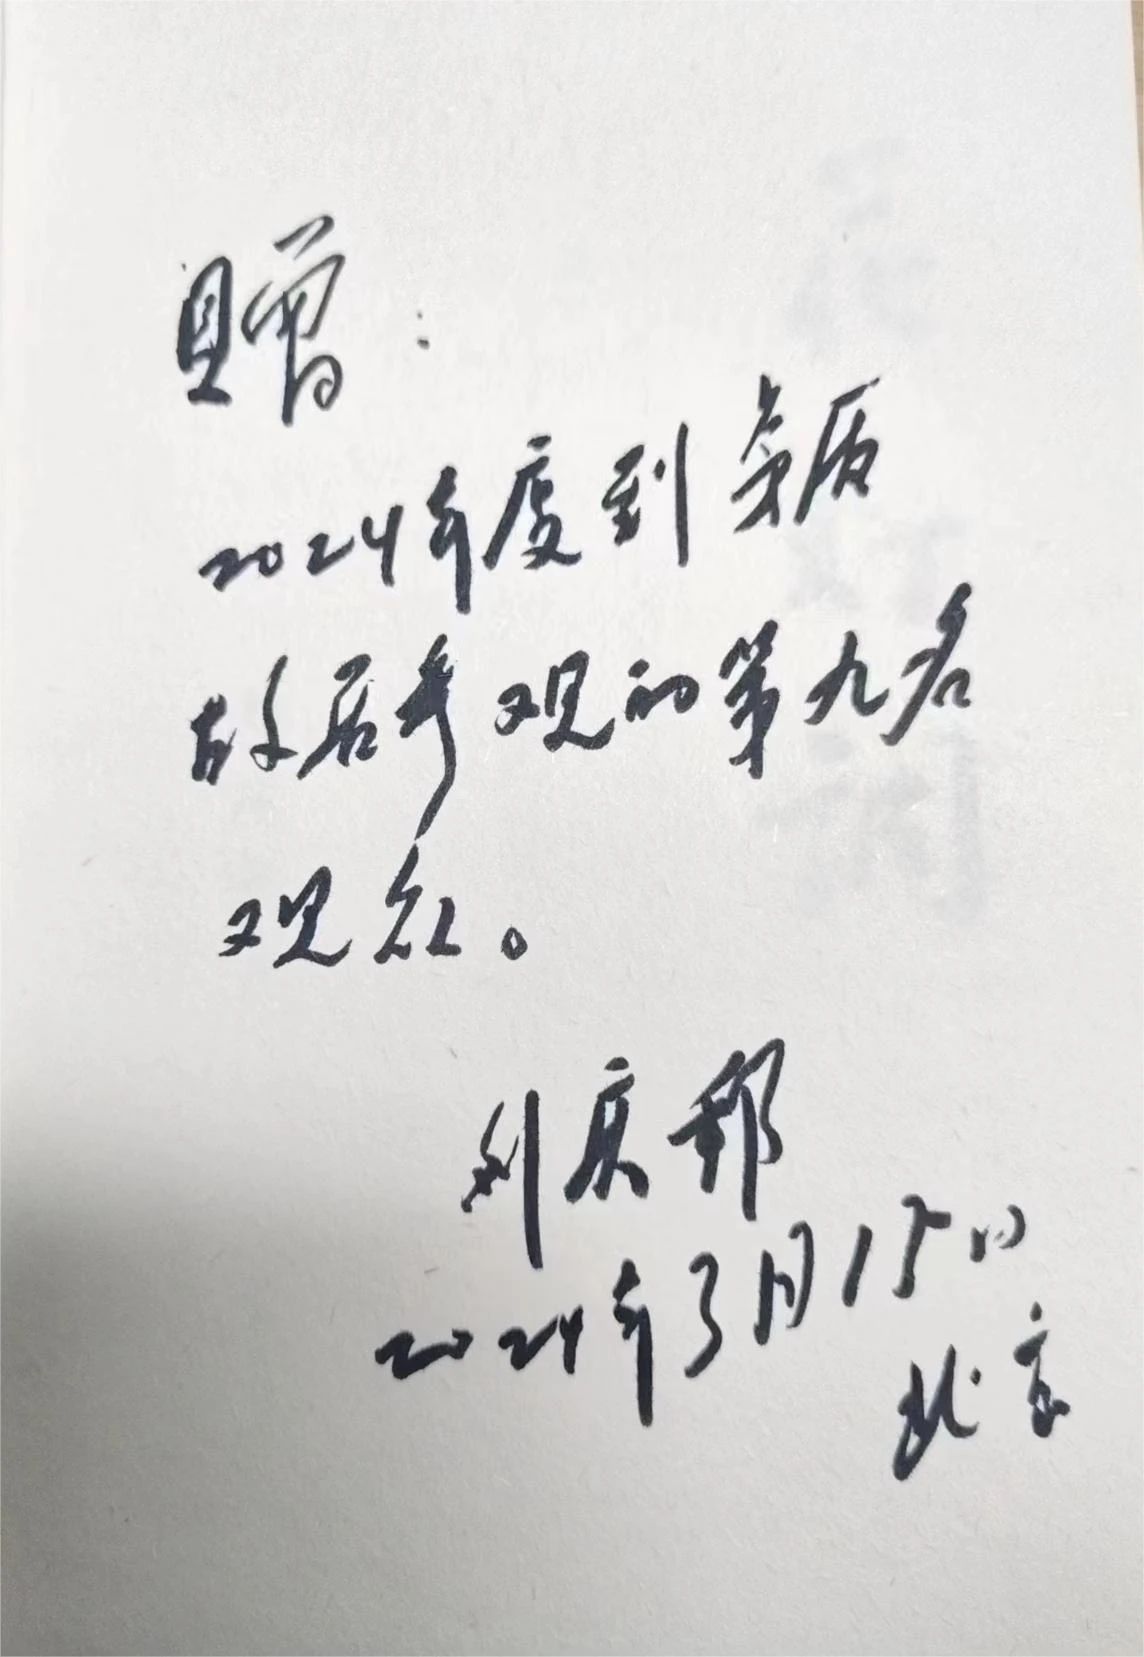 赠：
2024年度到茅盾
故居参观的第九名
观众。
刘庆邦
2024年3月15日
北京